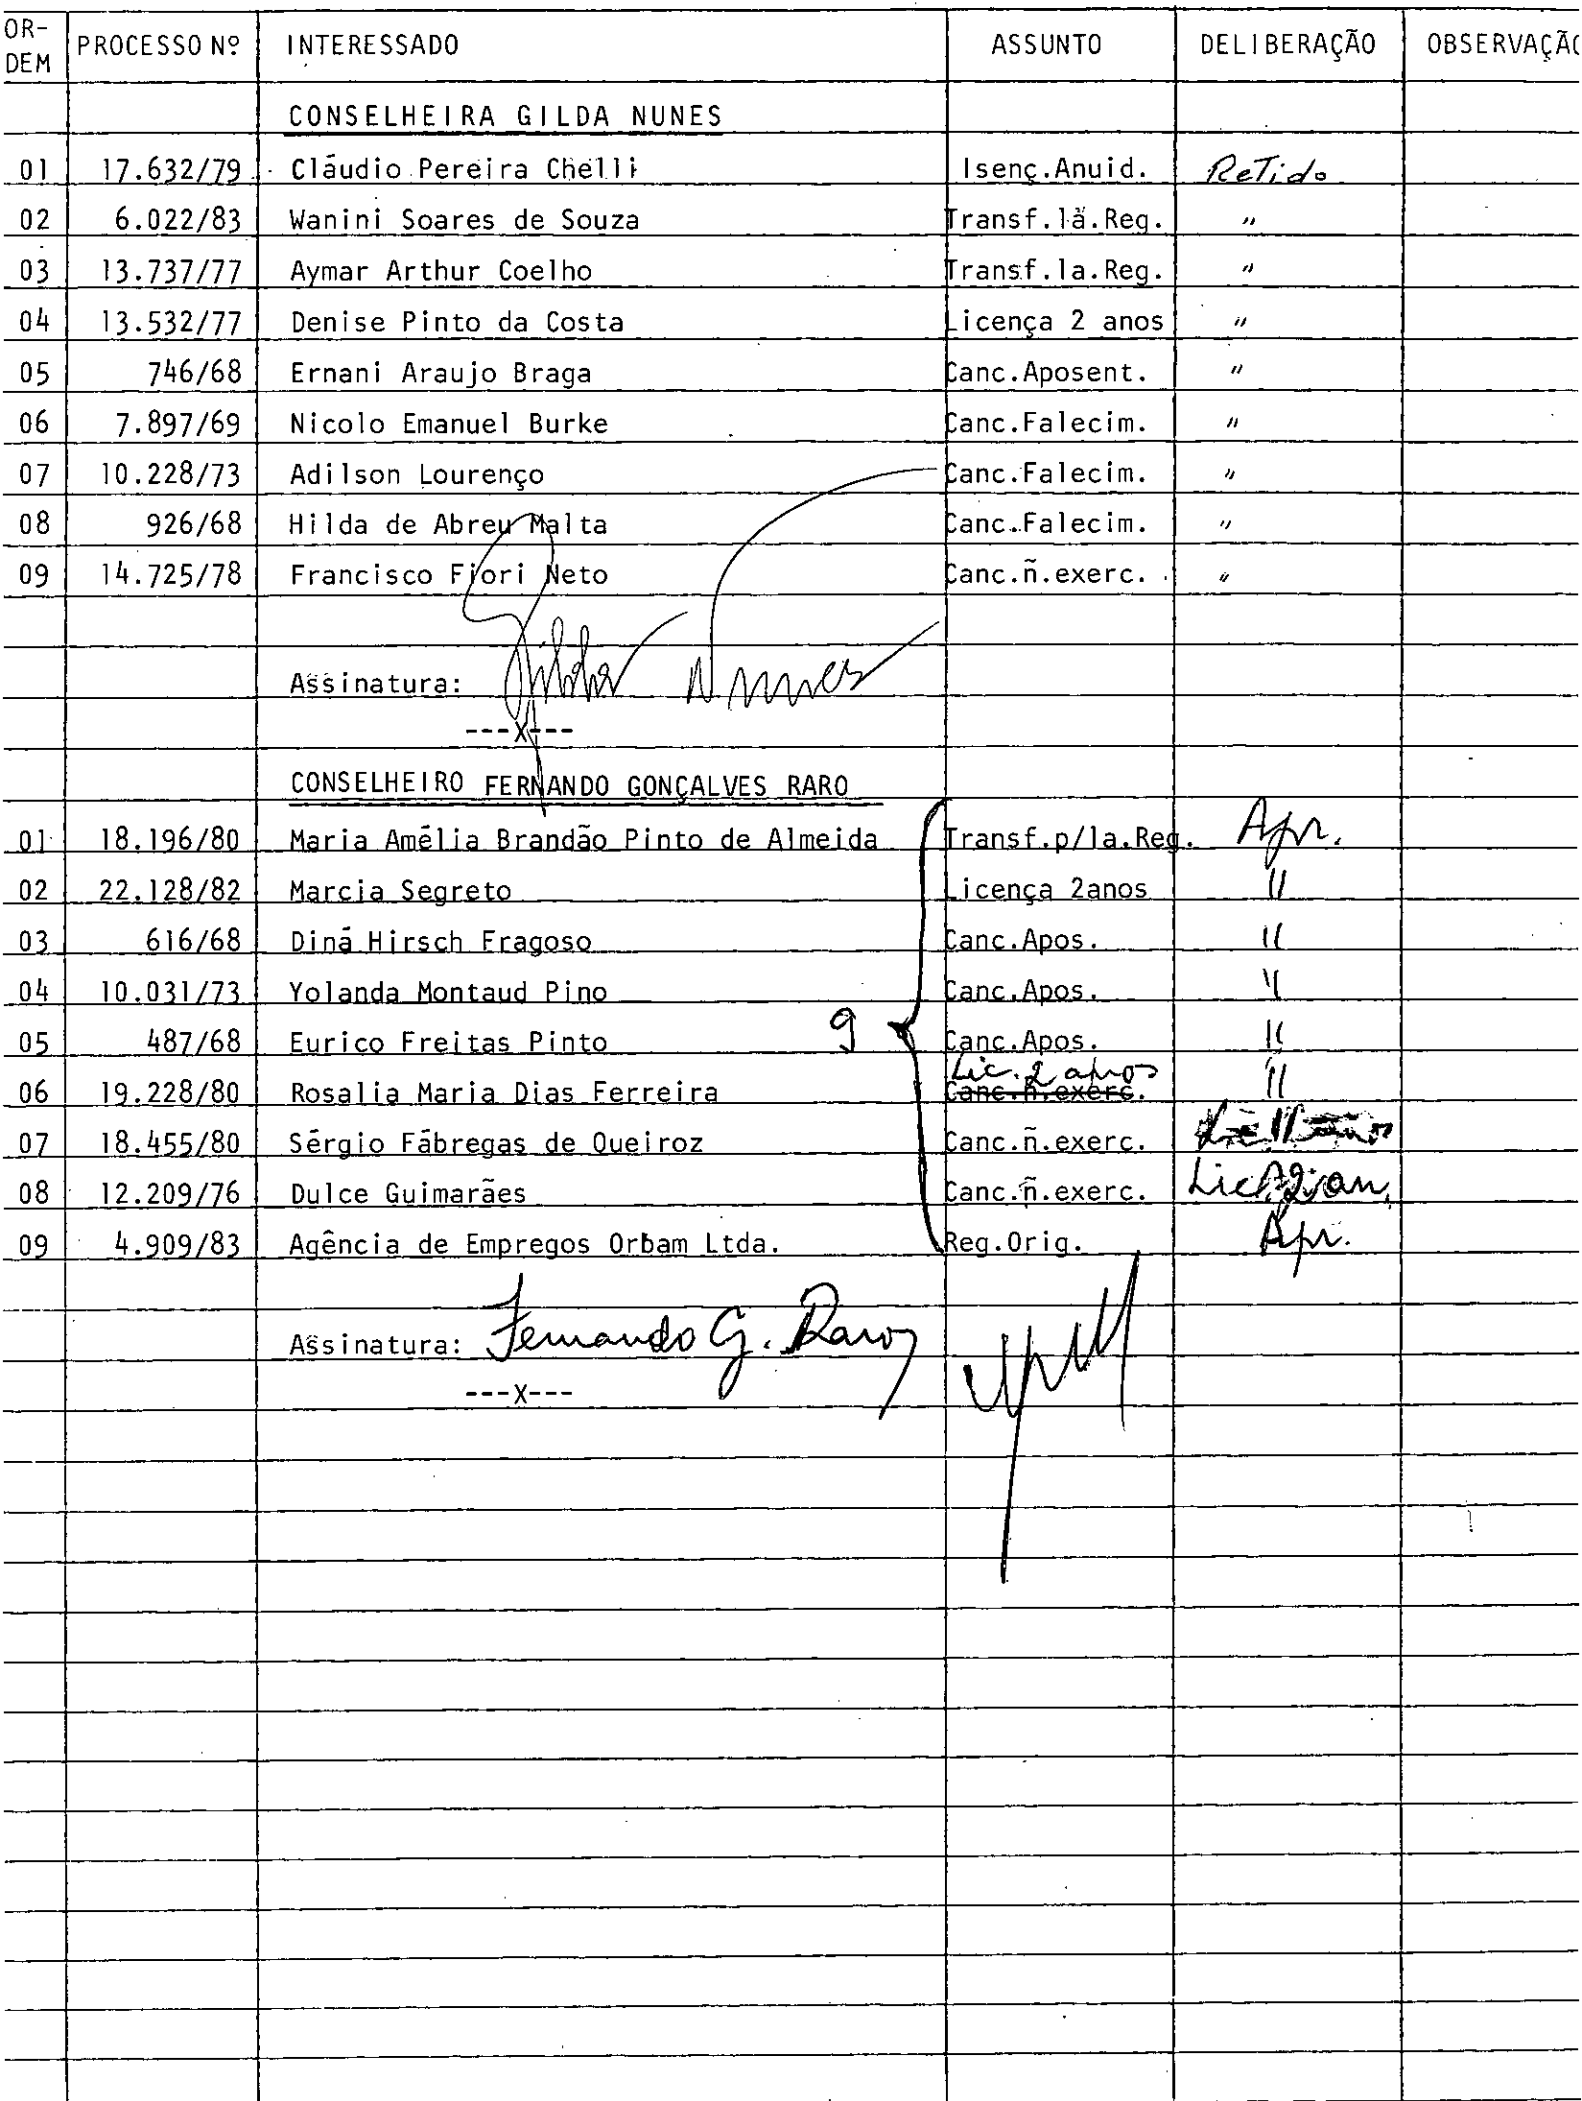 OR-DEM PROCESSO Nº INTERESSADO ASSUNTO DELIBERAÇÃO OBSERVAÇÃO
CONSELHEIRA GILDA NUNES
01 17.632/79 Cláudio Pereira Chelli Isenç.Anuid. Retido
02 6.022/83 Wanini Soares de Souza Transf.1ª.Reg. "
03 13.737/77 Aymar Arthur Coelho Transf.1a.Reg. "
04 13.532/77 Denise Pinto da Costa Licença 2 anos "
05 746/68 Ernani Araujo Braga Canc.Aposent. "
06 7.897/69 Nicolo Emanuel Burke Canc.Falecim. "
07 10.228/73 Adilson Lourenço Canc.Falecim. "
08 926/68 Hilda de Abreu Malta Canc.Falecim. "
09 14.725/78 Francisco Fiori Neto Canc.ñ.exerc. "
Assinatura: Gilda Nunes
---X---
CONSELHEIRO FERNANDO GONÇALVES RARO
01 18.196/80 Maria Amélia Brandão Pinto de Almeida Transf.p/1a.Reg. Apr.
02 22.128/82 Marcia Segreto Licença 2anos "
03 616/68 Diná Hirsch Fragoso Canc.Apos. "
04 10.031/73 Yolanda Montaud Pino Canc.Apos. "
05 487/68 Eurico Freitas Pinto 9 Canc.Apos. "
Lic. 2 anos
06 19.228/80 Rosalia Maria Dias Ferreira Canc.ñ.exerc. "
07 18.455/80 Sérgio Fábregas de Queiroz Canc.ñ.exerc.
08 12.209/76 Dulce Guimarães Canc.ñ.exerc. Lic. 2 an.
09 4.909/83 Agência de Empregos Orbam Ltda. Reg.Orig. Apr.
Assinatura: Fernando G. Raro
---X---